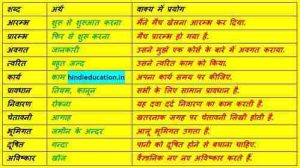 शब्द अर्थ वाक्य में प्रयोग
आरम्भ शुरू से शुरुआत करना मैंने मैच खेलना आरम्भ कर दिया.
प्रारम्भ फिर से शुरू करना मैच प्रारम्भ हो गया है.
अवगत जानकारी उसने मुझे एक कोर्स के बारे में अवगत कराया.
त्वरित बहुत जल्द उसने त्वरित काम को किया.
कार्य काम hindieducation.in अपना कार्य समय पर कीजिए.
प्रावधान नियम, कानून सभी के लिए सामान प्रावधान हैं.
निवारण रोकना यह दवा दर्द निवारण का काम करती हैं.
चेतावनी आगाह खतरनाक जगह पर चेतावनी लिखी होती है.
भूमिगत जमीन के अन्दर आलू भूमिगत उगता हैं.
दूषित गन्दा पानी को दूषित होने से बचाना चाहिए.
अविष्कार खोज वैज्ञानिक नए नए अविष्कार करते हैं.